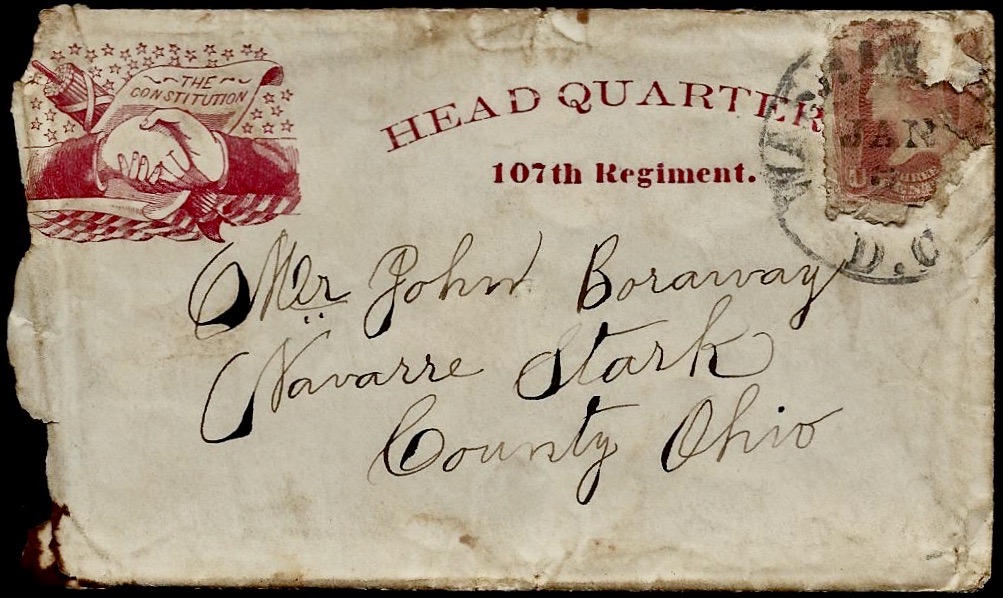 THE
CONSTITUTION
HEAD QUARTER
107th Regiment.
JAN
D.C
Mr John Boraway
Navarre Stark
County Ohio